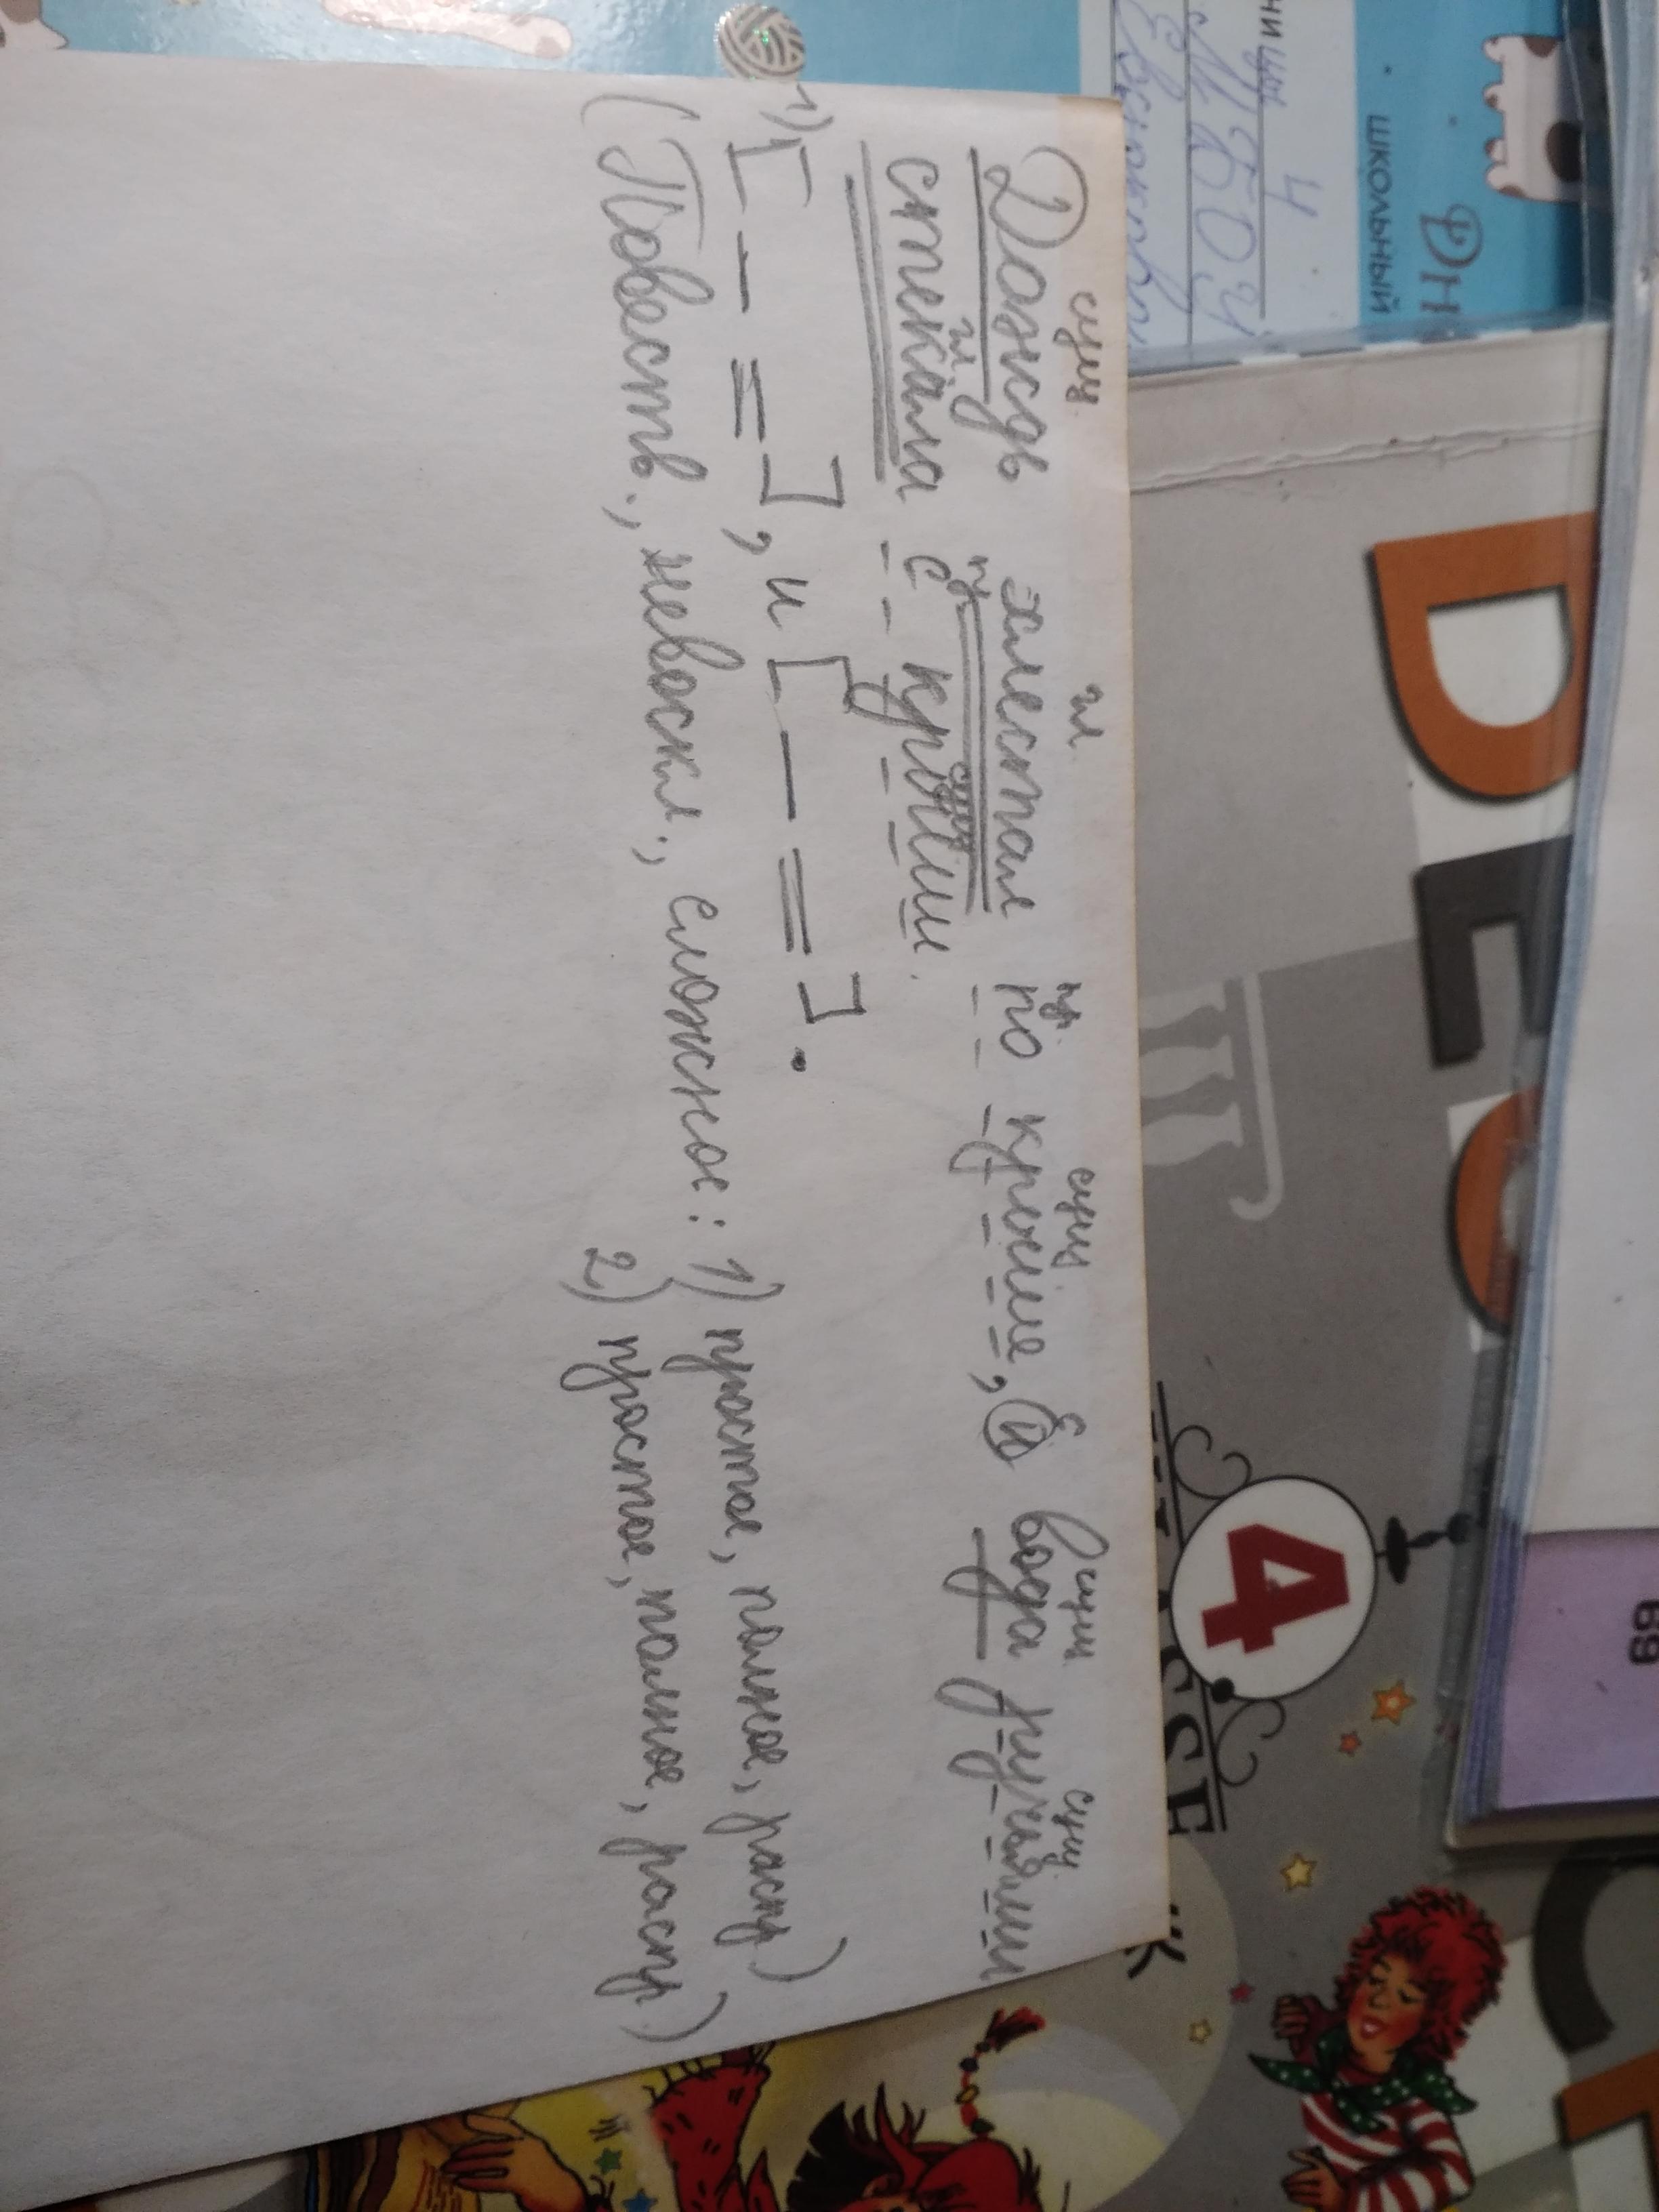 сущ. гл пр. сущ с сущ. сущ.
Дождь хлестал по крыше, и вода ручьями
гл. пр. сущ
стекала с крыши.
1) [— =], и [— =].
(Повеств., невоскл., сложное: 1) простое, полное, распр)
2) простое, полное, распр)
4
МБОУ
ШКОЛЬНЫЙ
ДН
DE
4
69